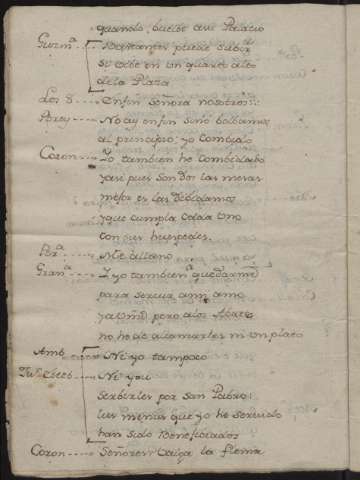 quando, buelbe asi Palacio
Guzm.ª Bastantes puede subir
si vibe en un quarto alto
de la Plaza
Los 8. Enfin señora nosotros:::
Porcy No ay enfin sino bolbamos
al principio; yo combido
Coron. Yo tambien he combidado
y asi pues son dos las mesas
mejor es las dibidamos
y que cumpla cada uno
con sus huespedes.
Por.ª Me allano
Gran.ª Y yo tambien quedarme
para servir a mi amo
pero a los
no he de alcanzarles ni un plato
Amb. Ni yo tampoco
Ni yo
serbirles por San Pablo:
les menus que yo he servido
han sido Beneficiados
Coron. Señores Valga la flema